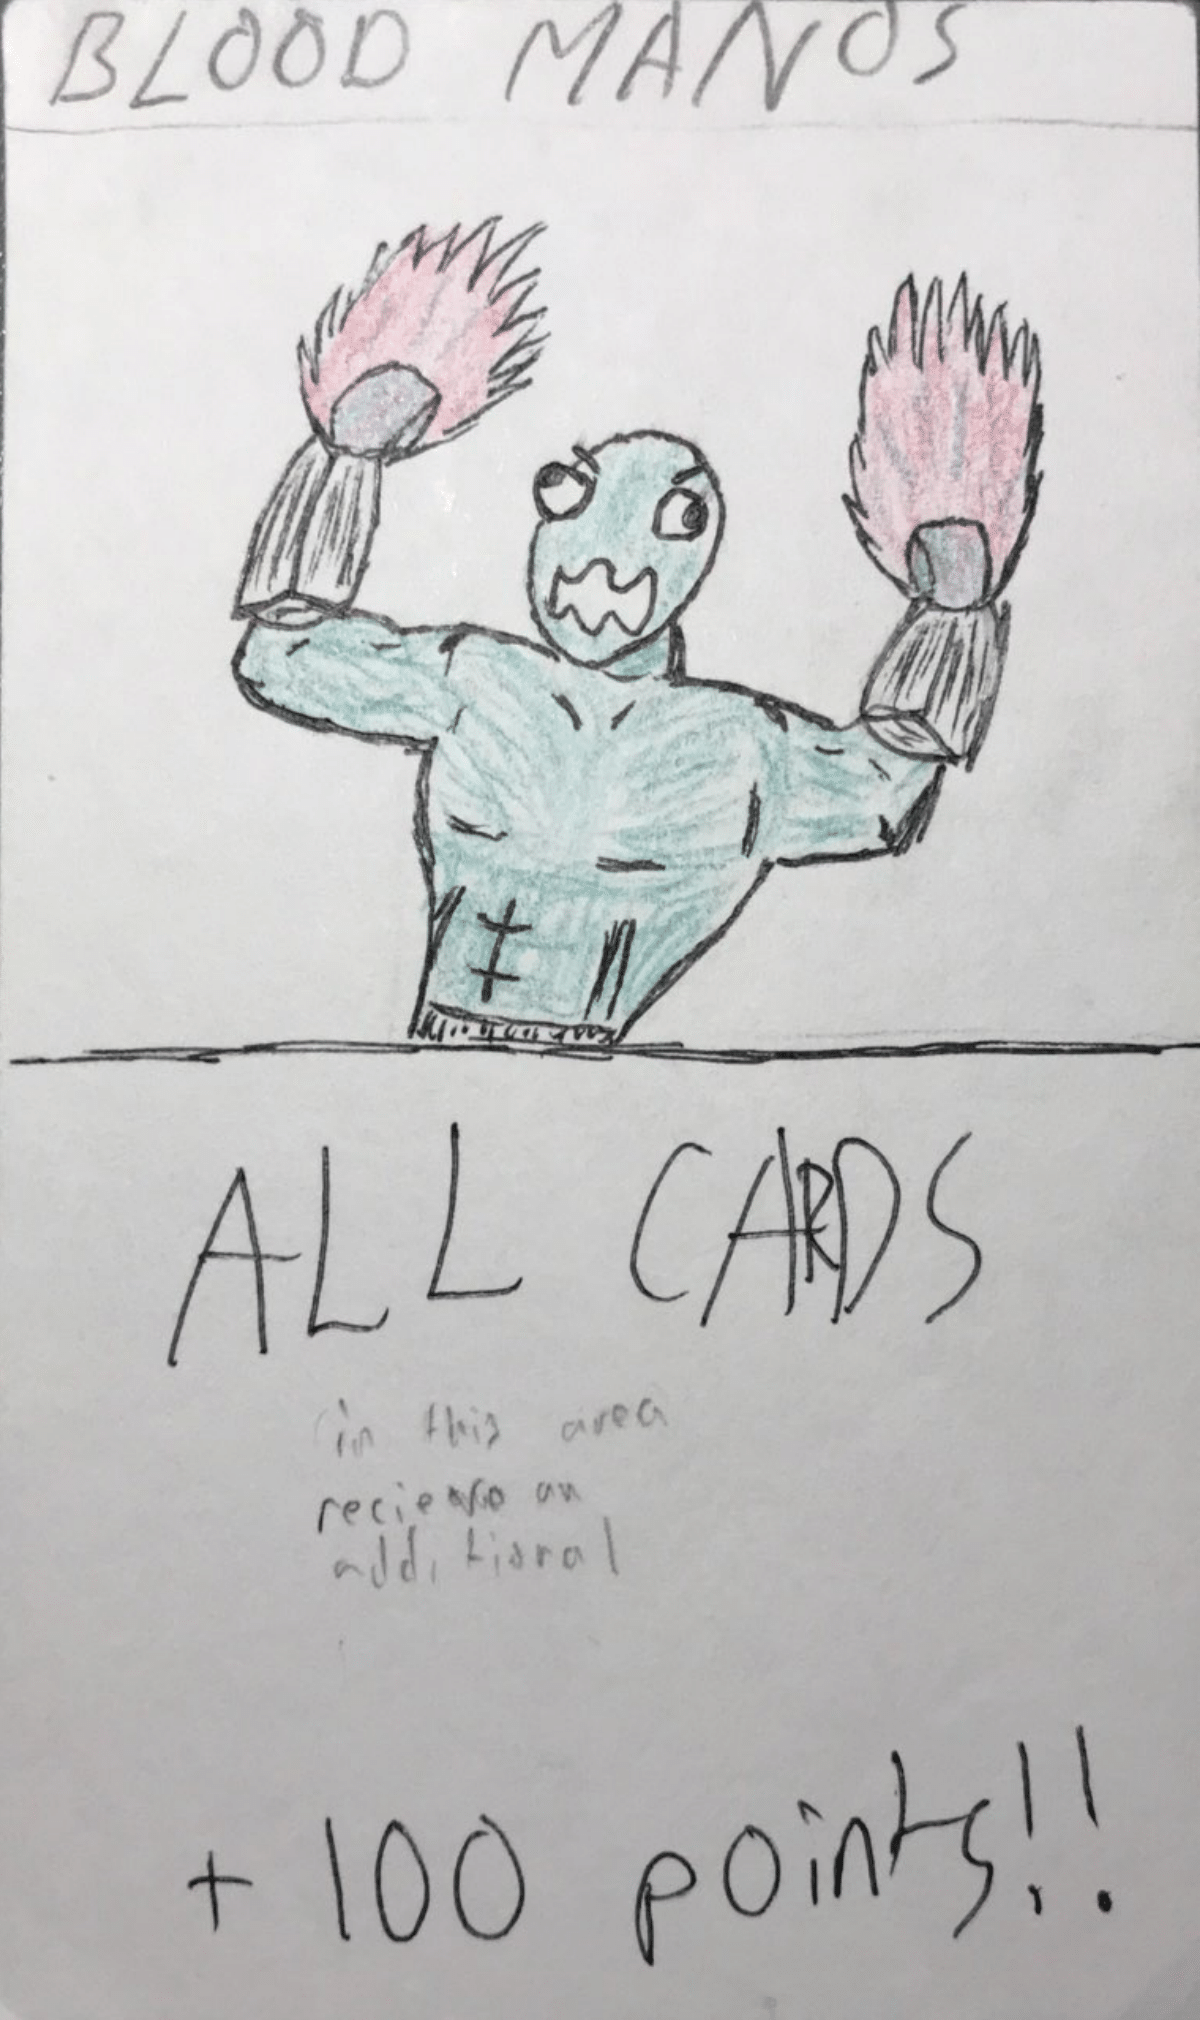 BLOOD MANOS
ALL CARDS
in this area
recieve an
additional
+ 100 points!!